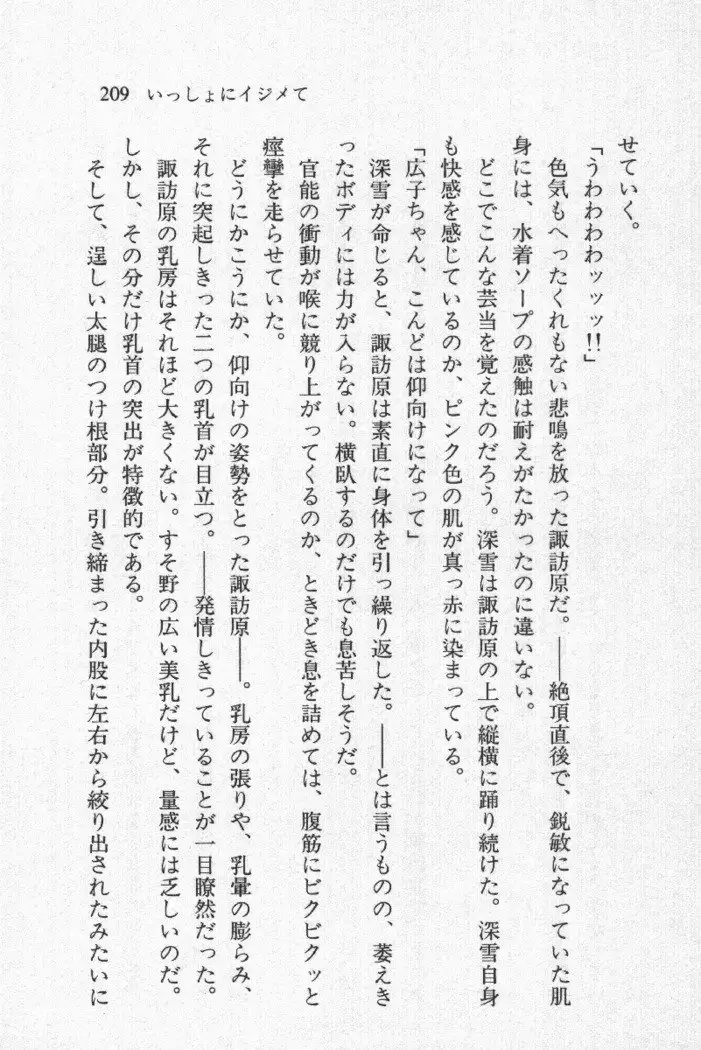 209 いっしょにイジメて
せていく。
「うわわわわッッッ!!」
色気もへったくれもない悲鳴を放った諏訪原だ。――絶頂直後で、鋭敏になっていた肌
身には、水着ソープの感触は耐えがたかったのに違いない。
どこでこんな芸当を覚えたのだろう。深雪は諏訪原の上で縦横に踊り続けた。深雪自身
も快感を感じているのか、ピンク色の肌が真っ赤に染まっている。
「広子ちゃん、こんどは仰向けになって」
深雪が命じると、諏訪原は素直に身体を引っ繰り返した。――とは言うものの、萎えき
ったボディには力が入らない。横臥するのだけでも息苦しそうだ。
官能の衝動が喉に競り上がってくるのか、ときどき息を詰めては、腹筋にビクビクッと
痙攣を走らせていた。
どうにかこうにか、仰向けの姿勢をとった諏訪原――。乳房の張りや、乳暈の膨らみ、
それに突起しきった二つの乳首が目立つ。――発情しきっていることが一目瞭然だった。
諏訪原の乳房はそれほど大きくない。すそ野の広い美乳だけど、量感には乏しいのだ。
しかし、その分だけ乳首の突出が特徴的である。
そして、逞しい太腿のつけ根部分。引き締まった内股に左右から絞り出されたみたいに